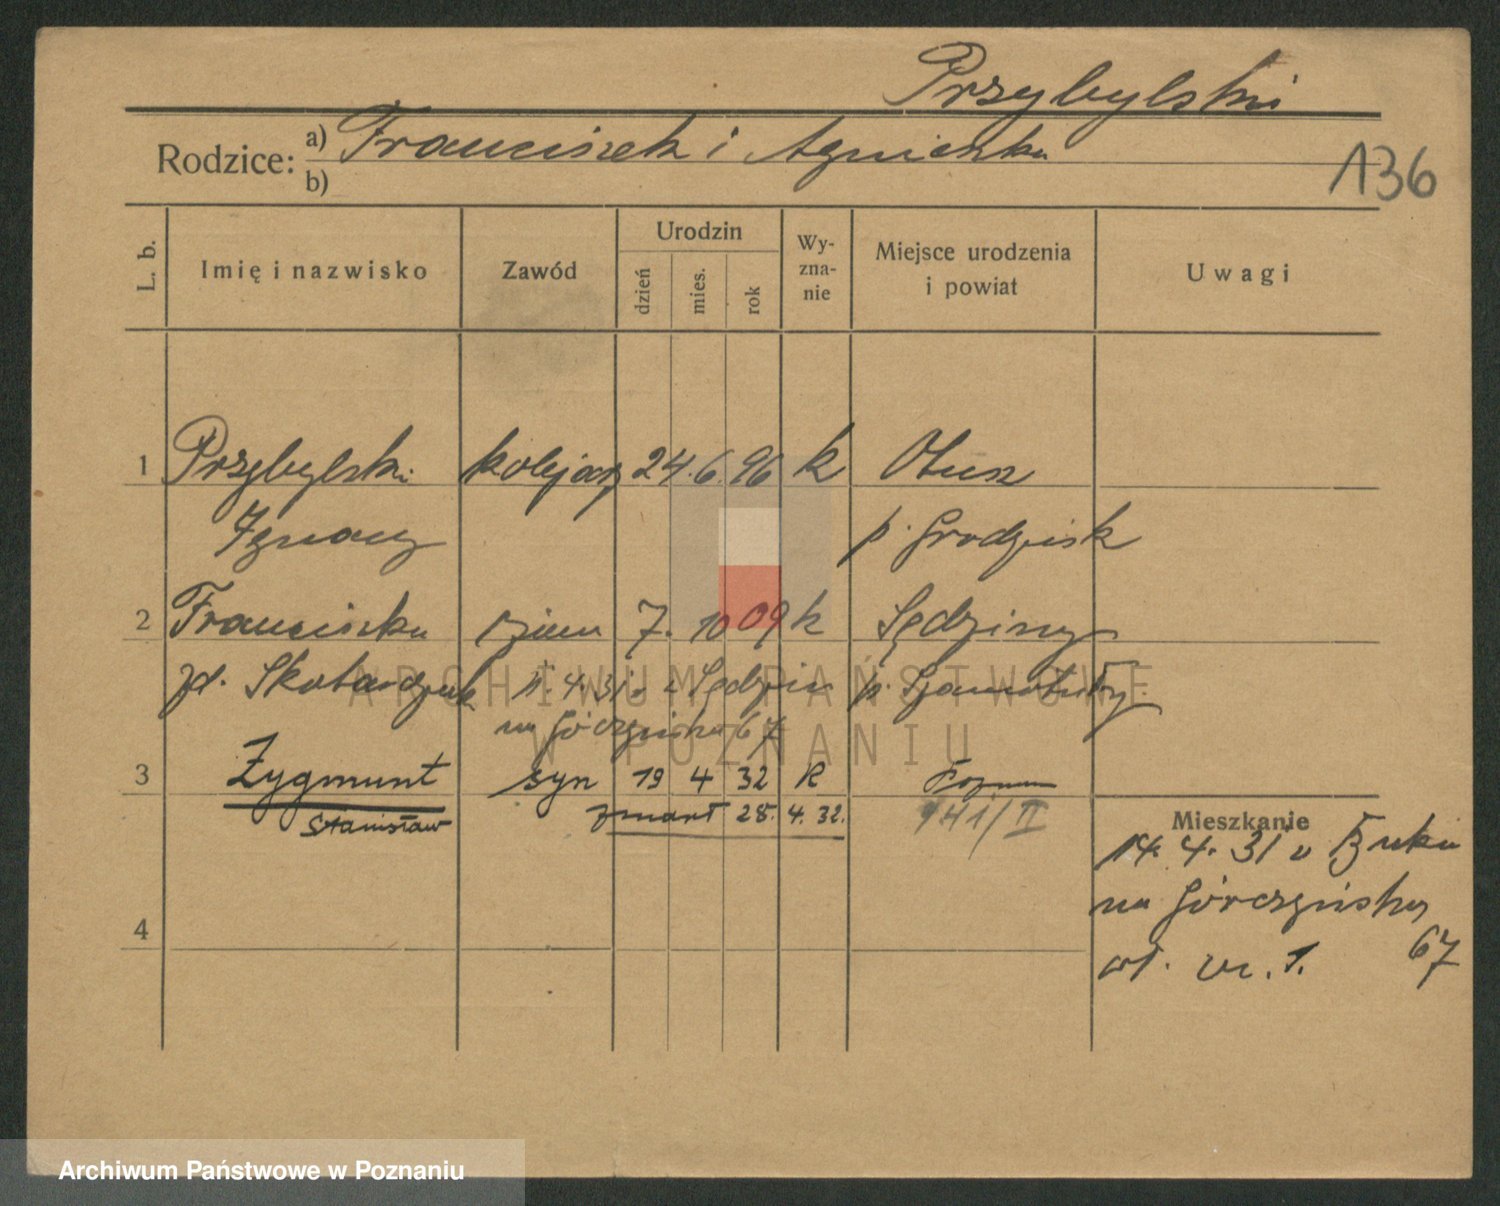 Przybylski
Rodzice: a) Franciszek i Agnieszka
b)
136
L. b.
Imię i nazwisko
Zawód
Urodzin
dzień
mies.
rok
Wy-
zna-
nie
Miejsce urodzenia
i powiat
Uwagi
1 Przybylski kolejarz 24. 6. 96 k Otusz
Ignacy p. Grodzisk
2 Franciszka 7. 10 09 k Sędziny
zd. 4. 31 p. Szamotuły
na Górczyńska 67
3 Zygmunt syn 19 4 32 R Poznań
Stanisław zmarł 28. 4. 32. 141/II
Mieszkanie
14. 4. 31 v Buku
na Górczyńska
67
4
1.
ARCHIWUM PAŃSTWOWE
W POZNANIU
Archiwum Państwowe w Poznaniu